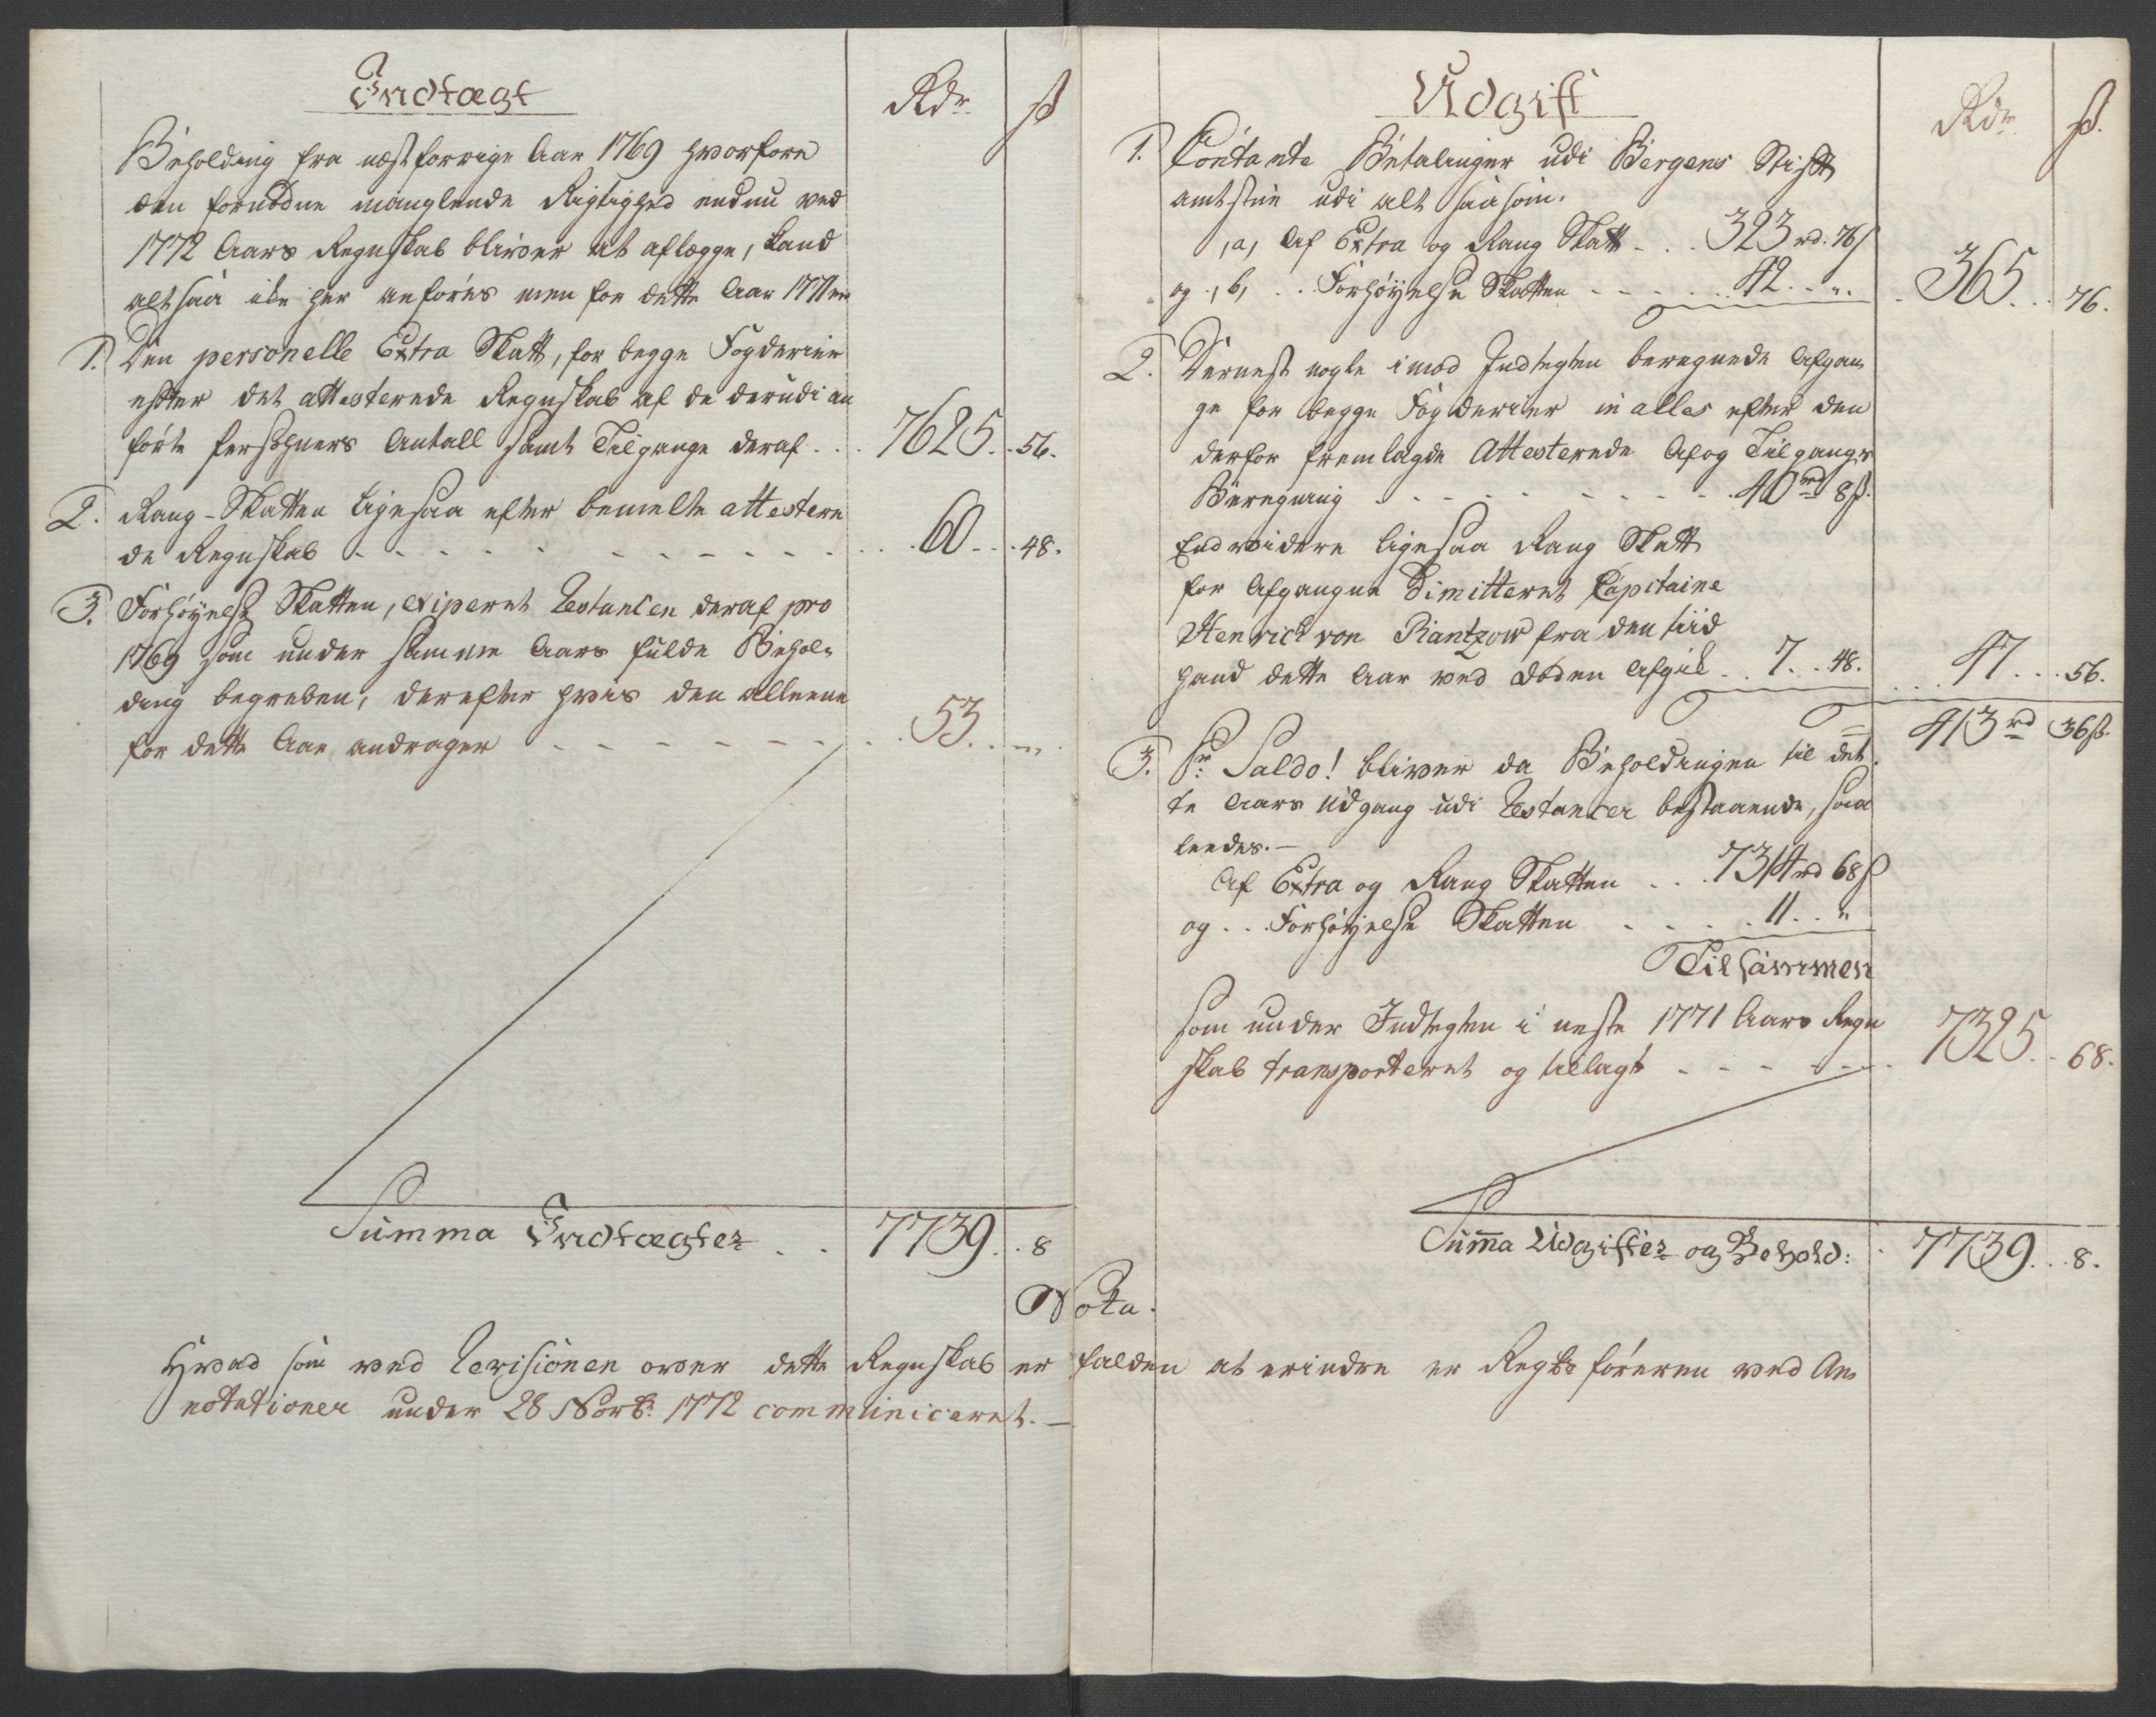 Indtægt
Rdr ß
Beholding fra næst forrige Aar 1769 hvorfore
den fornødne manglende Rigtighed endnu ved
1772 Aars Regnskab bliver at aflægge, kand
altsaa icke her anføres men for dette Aar 1771 er
1. Den personelle Extra Skatt, for begge Fogderier
efter det attesterede Regnskab af de derudi an
førte Persohners Antall samt Tilgange deraf . . . 7625 . . 56.
2. Rang-Skatten ligesaa efter bemelte attestere
de Regnskab - - - - - - . . . 60 . . . 48.
3. Forhøyelse Skatten, exiperet Restancen deraf pro
1769 som under samme Aars fulde Behol-
ding begreben, derefter hvis den alleene
for dette Aar andrager - - - - - - . . 53 . . „ .
Summa Indtægter . . 7739 . . 8
Udgift
Rdr ß.
1. Contante Betalinger udi Bergens Stift
amtstue udi alt saasom.
,a, Af Extra og Rang Skatt - . . 323 rd. 76 ß
og ,b, . . Forhøyelse Skatten - - - - . . 42 . . „ . 365 . . . 76.
2. Dernest nogle imod Indtegten beregnede Afgan
ge for begge Fogderier in alles efter den
derfor fremlagde Attesterede Af og Tilgangs
Beregning - - - - - - - . 40 rd 8 ß.
Endvidere ligesaa Rang Skatt
for Afgangne Dimitteret Capitaine
Henrich von Rantzow fra den tiid
hand dette Aar ved Døden Afgik . . 7 . . 48. . . . 47 . . . 56.
413 rd 36 ß.
3. Pr Saldo! bliver da Beholdingen til det
te Aars Udgang udi Restancer bestaaende, saa
leedes. —
Af Extra og Rang Skatten . . . 7314 rd 68 ß
og . . . Forhøyelse Skatten - - - . . 11 . . „
Tilsammen
som under Indtegten i neste 1771 Aars Regn
skab transporteret og tillagt - - - - - 7325 . . 68.
Summa Udgifter og Behold: . 7739 . . . 8.
Nota.
Hvad som ved Revisionen over dette Regnskab er falden at erindre er Regsk: føreren ved An
notationer under 28 Novb: 1772 communiceret. —